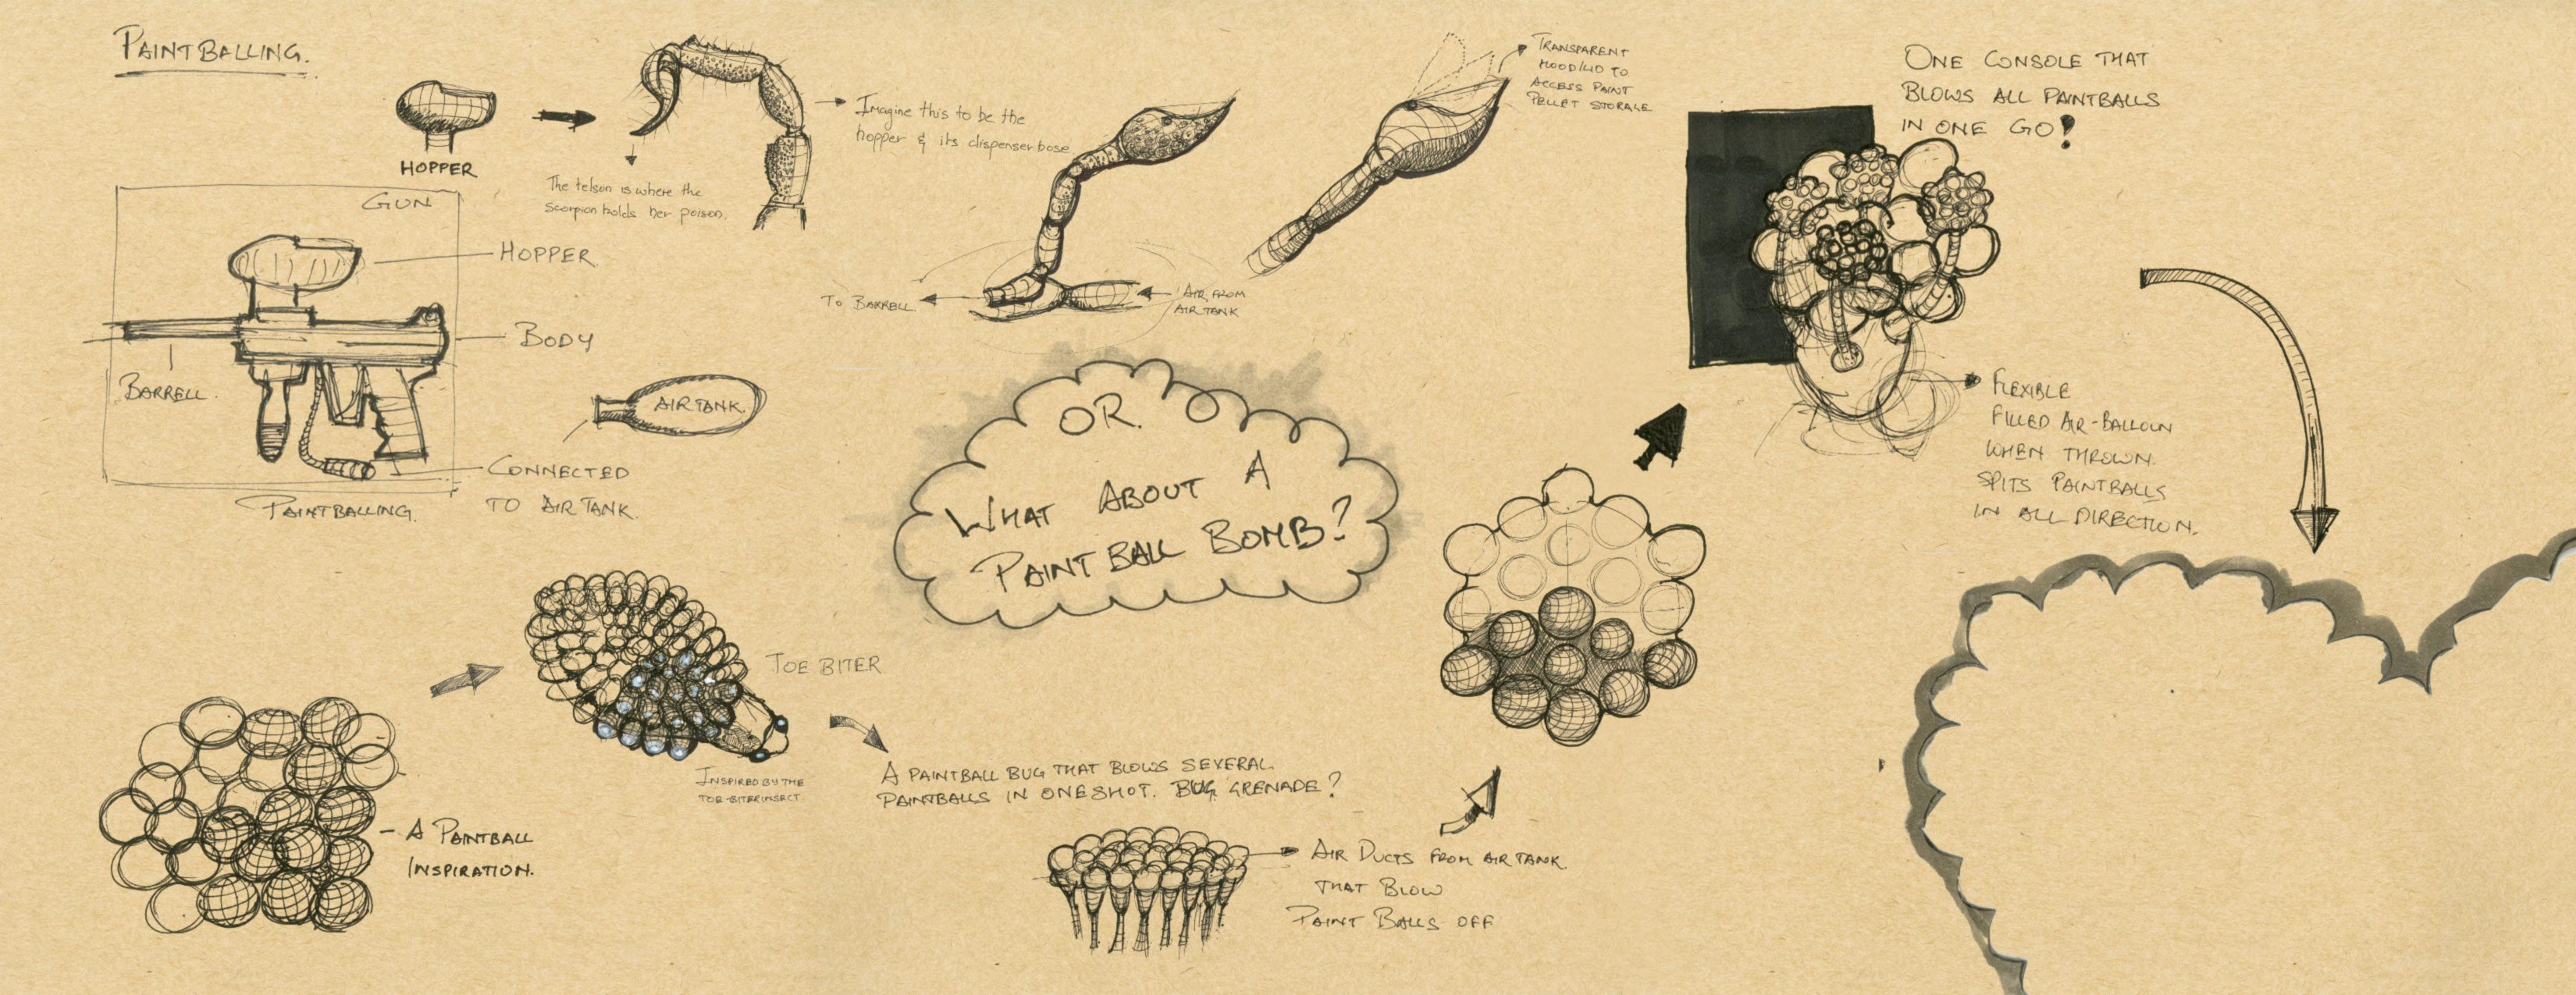 PAINTBALLING.
HOPPER
Imagine this to be the
hopper & its dispenser base.
The telson is where the
scorpion holds her poison.
GUN
HOPPER
BODY
BARRELL.
AIR TANK.
CONNECTED
TO AIR TANK.
PAINTBALLING.
TO BARRELL
AIR FROM
AIR TANK
TRANSPARENT
HOOD/LID TO
ACCESS PAINT
PELLET STORAGE
OR.
WHAT ABOUT A
PAINT BALL BOMB?
ONE CONSOLE THAT
BLOWS ALL PAINTBALLS
IN ONE GO!
FLEXIBLE
FILLED AIR-BALLOON
WHEN THROWN.
SPITS PAINTBALLS
IN ALL DIRECTION.
A PAINTBALL
INSPIRATION.
TOE BITER
INSPIRED BY THE
TOE-BITER INSECT.
A PAINTBALL BUG THAT BLOWS SEVERAL
PAINTBALLS IN ONE SHOT. BUG GRENADE?
AIR DUCTS FROM AIR TANK
THAT BLOW
PAINT BALLS OFF